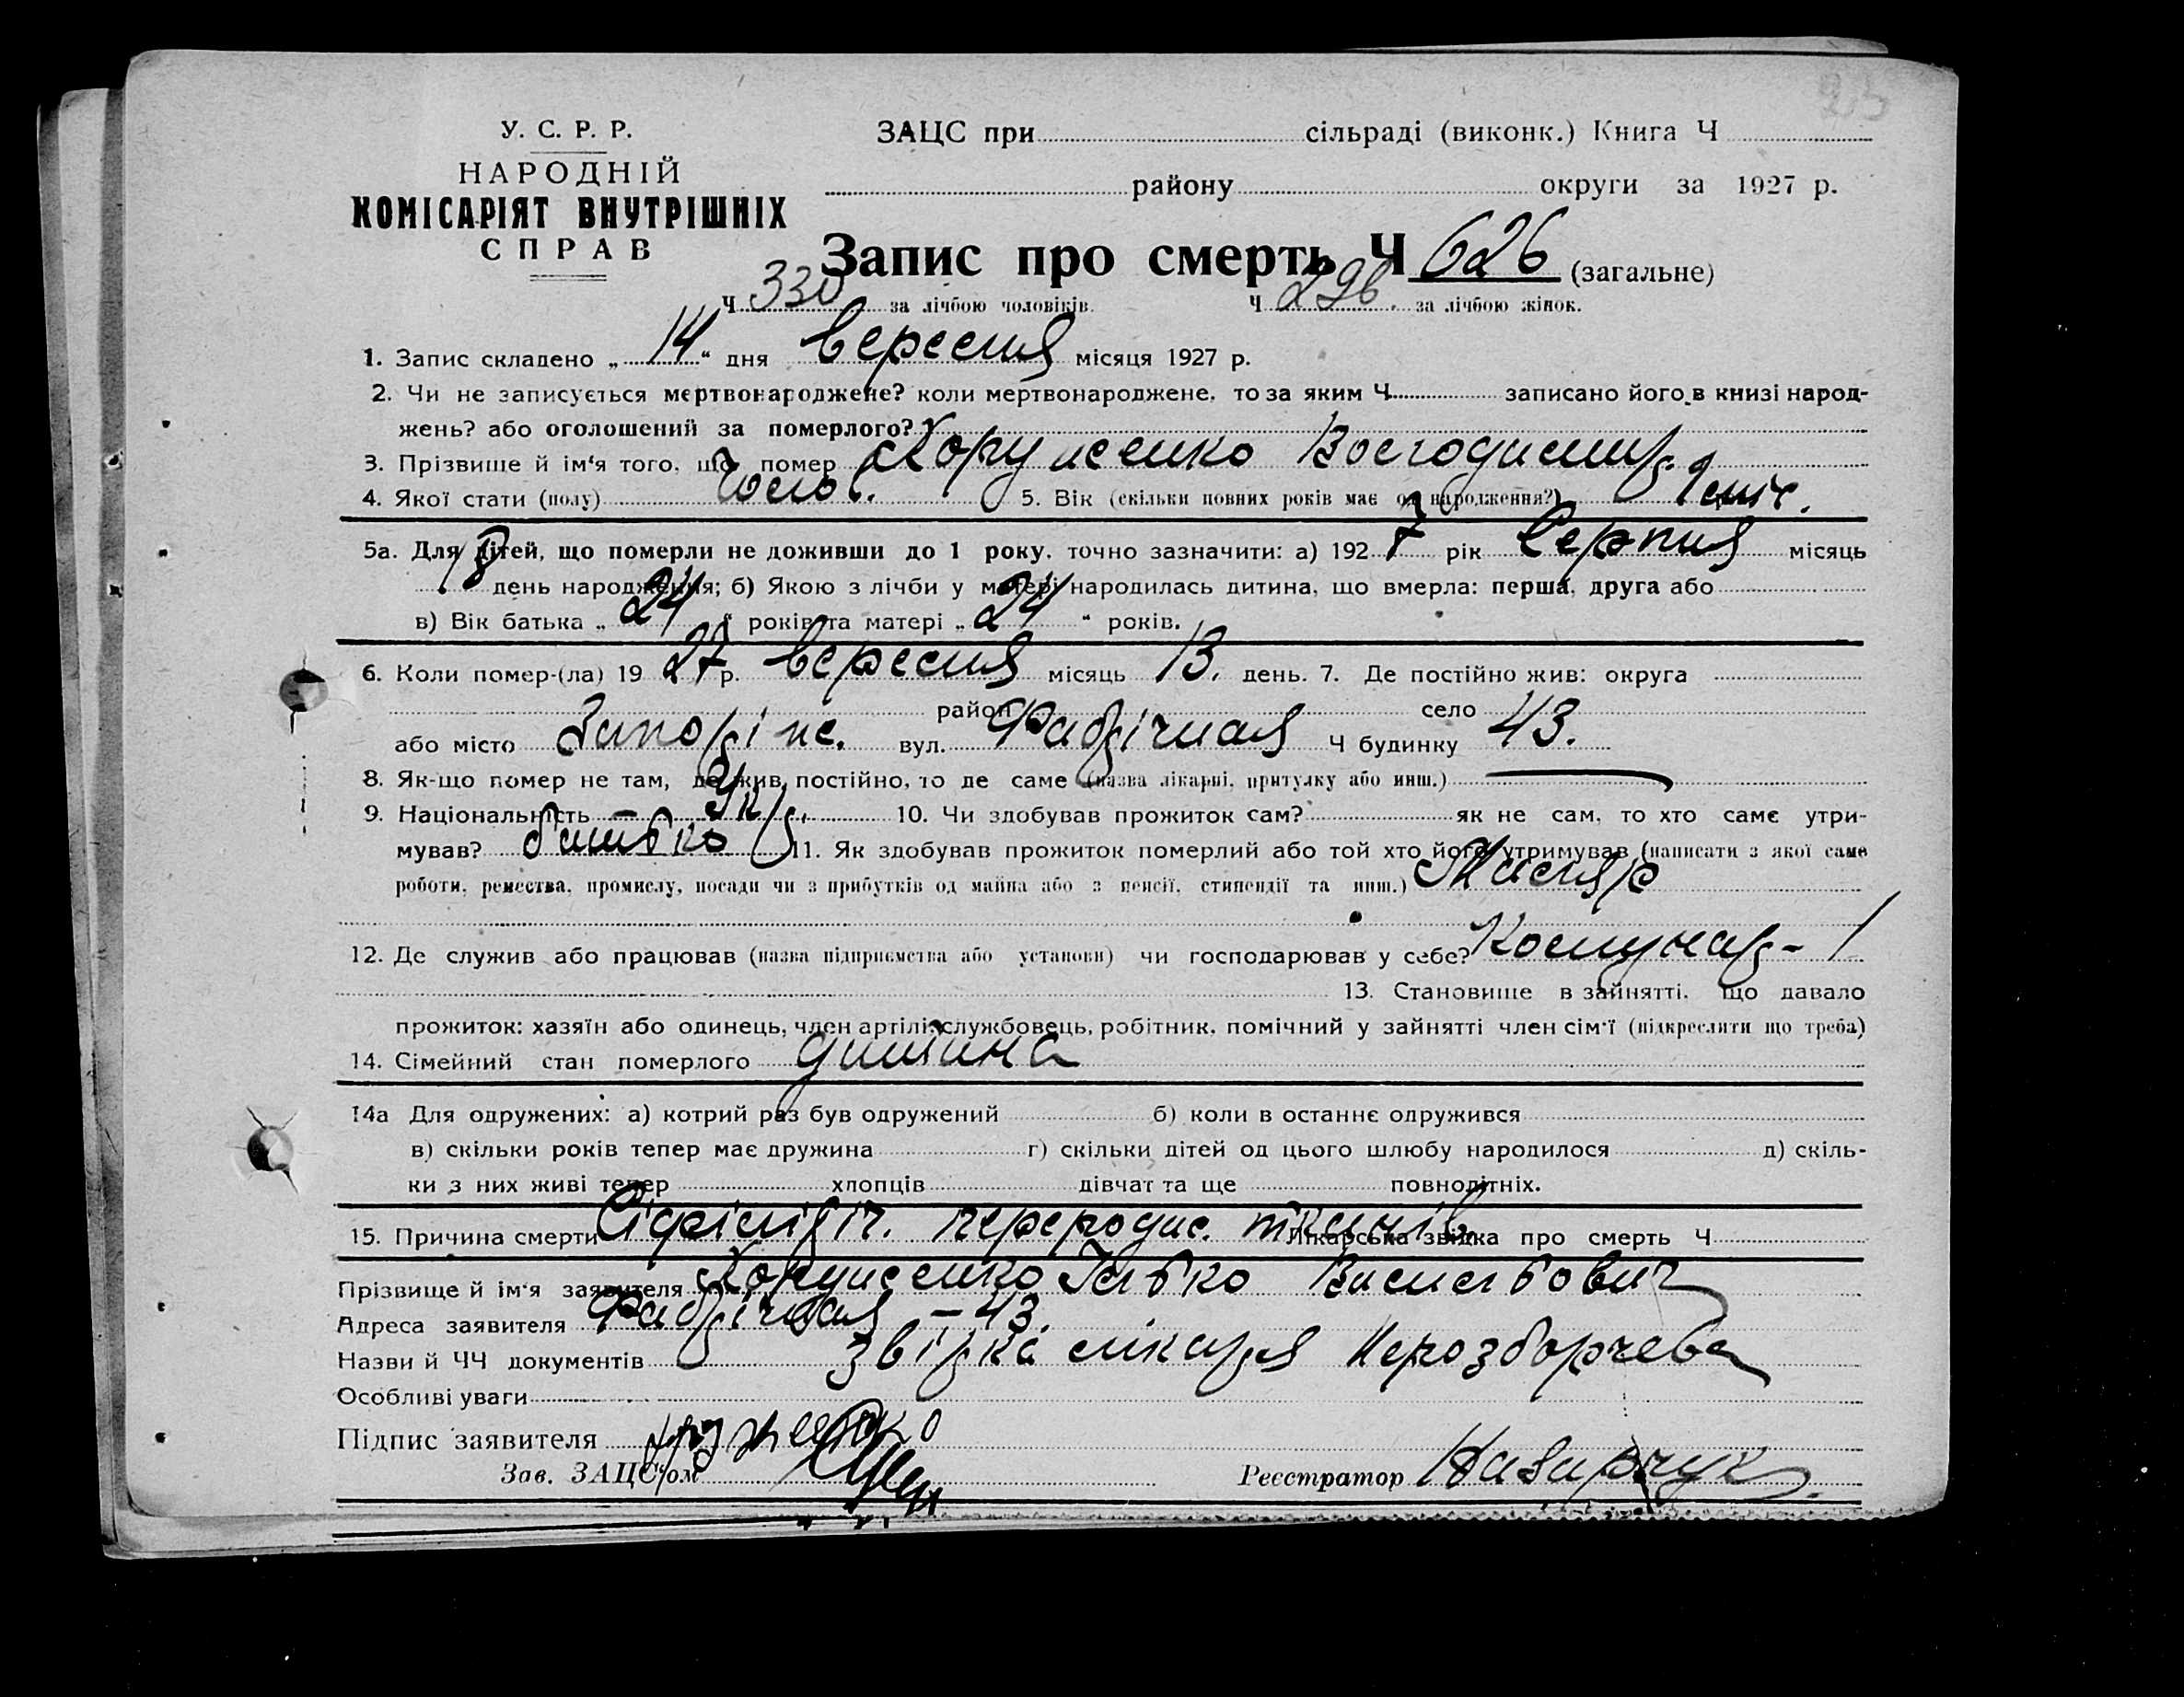 23
У. С. Р. Р.
НАРОДНІЙ
КОМІСАРІЯТ ВНУТРІШНІХ
СПРАВ
ЗАЦС при сільраді (виконк.) Книга Ч
району округи за 1927 р.
Запис про смерть Ч 626 (загальне)
Ч 330 за лічбою чоловіків. Ч 296. за лічбою жінок.
1. Запис складено „ 14 “ дня вересня місяця 1927 р.
2. Чи не записується мертвонароджене? коли мертвонароджене, то за яким Ч записано його в книзі народ-
жень? або оголошений за померлого?
3. Прізвище й ім‘я того, що помер Володимир
4. Якої статі (полу) Чолов. 5. Вік (скільки повних років має од народження?) 1 міс.
5а. Для дітей, що померли не доживши до 1 року, точно зазначити: а) 192 7 рік Серпня місяць
день народження; б) Якою з лічби у матері народилась дитина, що вмерла: перша, друга або
в) Вік батька „ 24 “ років та матері „ 24 “ років.
6. Коли помер-(ла) 19 27 р. вересня місяць 13. день. 7. Де постійно жив: округа
район село
або місто Запоріж. вул. Фабрічная Ч будинку 43.
8. Як-що помер не там, де жив постійно, то де саме (назва лікарні, притулку або инш.)
9. Національність Укр. 10. Чи здобував прожиток сам? як не сам, то хто саме утри-
мував? батько 11. Як здобував прожиток померлий або той хто його утримував (написати з якої саме
роботи, ремества, промислу, посади чи з прибутків од майна або з пенсії, стипендії та инш.) Маляр
12. Де служив або працював (назва підприємства або установи) чи господарював у себе? Комунар - 1
13. Становище в зайнятті, що давало
прожиток: хазяїн або одинець, член артілі, службовець, робітник, помічний у зайнятті член сім‘ї (підкреслити що треба)
14. Сімейний стан померлого дитина
14а Для одружених: а) котрий раз був одружений б) коли в останнє одружився
в) скільки років тепер має дружина г) скільки дітей од цього шлюбу народилося д) скіль-
ки з них живі тепер хлопців дівчат та ще повнолітніх.
15. Причина смерти Лікарська звідка про смерть Ч
Прізвище й ім‘я заявителя
Адреса заявителя Фабрічная - 43.
Назви й ЧЧ документів лікаря Нерозборчева
Особливі уваги
Підпис заявителя
Зав. ЗАЦС‘ом
Реєстратор Назарчук